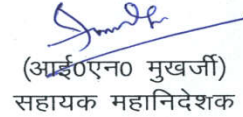 (आई0एन0 मुखर्जी)
सहायक महानिदेशक